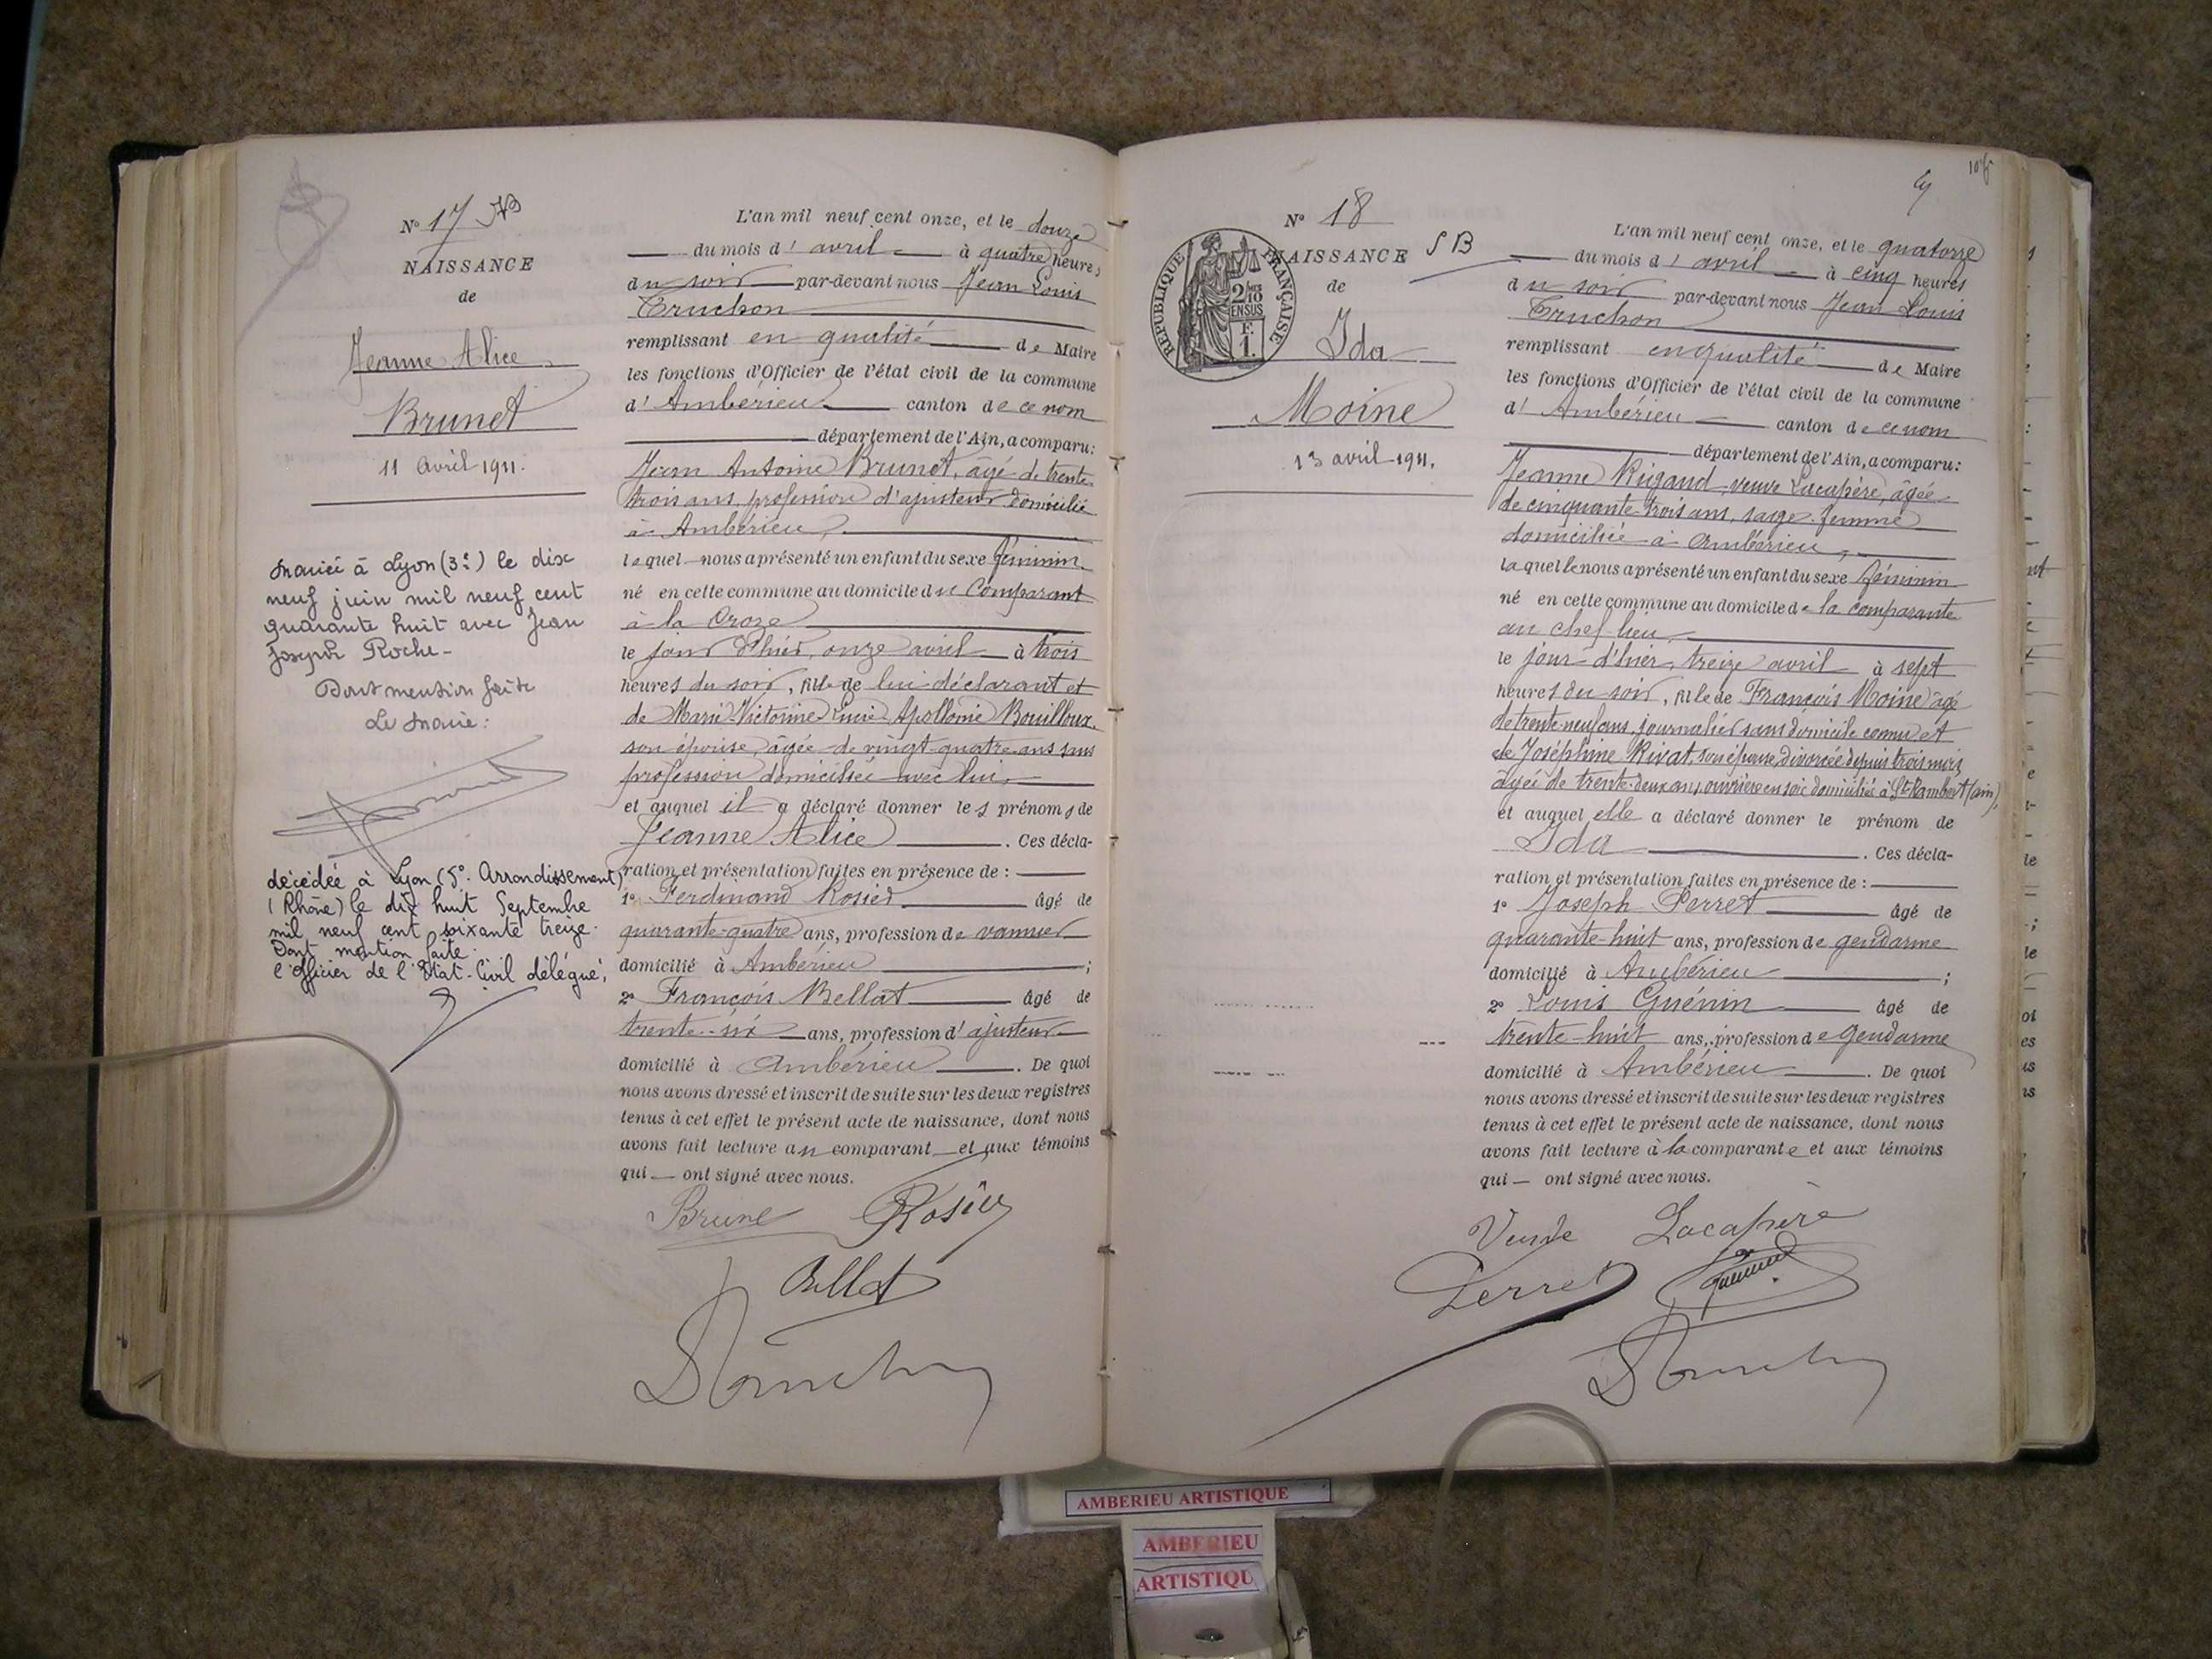 N° 17
NAISSANCE
de
Jeanne Alice
Brunet
11 avril 1911.
Mariée à Lyon (3e) le dix
neuf juin mil neuf cent
quarante huit avec Jean
Joseph Roche -
Dont mention faite
Le Maire :
décédée à Lyon (5e. Arrondissement)
(Rhône) le dix huit Septembre
mil neuf cent soixante treize.
Dont mention faite.
l'officier de l'Etat-Civil délégué,
L'an mil neuf cent onze, et le douze
du mois d'avril à quatre heures
du soir par-devant nous Jean Louis
Truchon
remplissant en qualité de Maire
les fonctions d'Officier de l'état civil de la commune
d'Ambérieu canton de ce nom
département de l'Ain, a comparu :
Jean Antoine Brunet, âgé de trente-
trois ans, profession d'ajusteur domicilié
à Ambérieu,
lequel nous a présenté un enfant du sexe féminin
né en cette commune au domicile du Comparant
à la Croze
le jour d'hier, onze avril à trois
heures du soir, fille de lui déclarant et
de Marie Victorine Lucie Apollonie Bouilloux
son épouse, âgée de vingt-quatre ans sans
profession domiciliée avec lui,
et auquel il a déclaré donner les prénoms de
Jeanne Alice . Ces décla-
ration et présentation faites en présence de :
1° Ferdinand Rosier âgé de
quarante-quatre ans, profession de vannier
domicilié à Ambérieu ;
2° François Bellat âgé de
trente-six ans, profession d'ajusteur
domicilié à Ambérieu . De quoi
nous avons dressé et inscrit de suite sur les deux registres
tenus à cet effet le présent acte de naissance, dont nous
avons fait lecture au comparant et aux témoins
qui ont signé avec nous.
Brunet Rosier
Bellat
Truchon
N° 18
NAISSANCE SB
de
Ida
Moine
13 avril 1911.
RÉPUBLIQUE FRANÇAISE
2/10 EN SUS
F. 1.
L'an mil neuf cent onze, et le quatorze
du mois d'avril à cinq heures
du soir par-devant nous Jean Louis
Truchon
remplissant en qualité de Maire
les fonctions d'Officier de l'état civil de la commune
d'Ambérieu canton de ce nom
département de l'Ain, a comparu :
Jeanne Rigaud, veuve Lacapère, âgée
de cinquante-trois ans, sage-femme
domiciliée à Ambérieu,
laquelle nous a présenté un enfant du sexe féminin
né en cette commune au domicile de la comparante
au chef-lieu
le jour d'hier, treize avril à sept
heures du soir, fille de François Moine âgé
de trente-neuf ans, journalier sans domicile connu et
de Joséphine Rivat, son épouse, divorcée depuis trois mois
âgée de trente-deux ans, ouvrière en soie domiciliée à St Rambert (ain),
et auquel elle a déclaré donner le prénom de
Ida . Ces décla-
ration et présentation faites en présence de :
1° Joseph Perret âgé de
quarante-huit ans, profession de gendarme
domicilié à Ambérieu ;
2° Louis Guénin âgé de
trente-huit ans, profession de gendarme
domicilié à Ambérieu . De quoi
nous avons dressé et inscrit de suite sur les deux registres
tenus à cet effet le présent acte de naissance, dont nous
avons fait lecture à la comparante et aux témoins
qui ont signé avec nous.
Veuve Lacapère
Perret Guénin
Truchon
AMBERIEU ARTISTIQUE
AMBERIEU
ARTISTIQU